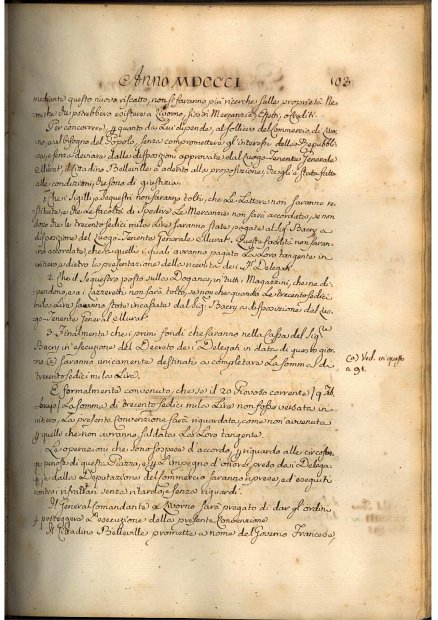 Anno MDCCCI
103
mediante questo nuovo riscatto, non si faranno più ricerche sulle proprietà Ne-
miche che potrebbero esistere a Livorno, sia in Mercanzie, Effetti, o Crediti.
Per concorrere, per quanto da Lui dipende, al sollievo del Commercio di Livor-
no, e al bisogno del Popolo, senza compromettere gl' interessi della Repubbli-
ca, e senza deviare dalle disposizioni approvate dal Luogo-Tenente Generale
Murat, il Cittadino Belleville è aderito alla proposizione, che gli è stata fatta
alle condizioni, che sono di giustizia.
i Sigilli, e Sequestri non saranno tolti, che Le Lettere non saranno re-
stituite, e che Le facoltà di spedire Le Mercanzie non sarà accordata, se non
dove che le trecento sedici mila Lire saranno state pagate al Sig. Bacry a
disposizione del Luogo-Tenente Generale Murat. Queste facilità non saran-
no accordate, che a quelli i quali avranno pagato La Loro tangente in
intero, dietro la presentazione della ricevuta dei Delegati.
2. Che il Sequestro posto sulla Dogana, in tutti i Magazzini, che ne di-
pendono, e a i Lazzeretti non sarà tolto, se non che quando Le trecento sedici
mila Lire saranno state incassate dal Sig. Bacry a disposizione del Luo-
go-Tenente General Murat.
3. Finalmente che i primi fondi che saranno nella Cassa del Sig.
Bacry in esecuzione del Decreto dei Delegati in data di questo gior-
no (a) saranno unicamente destinati a completare La somma di
trecento sedici mila Lire.
(a) Ved. in questo
a 91.
È formalmente convenuto, che se il 20 Piovoso corrente (9 Feb-
braio) La somma di trecento sedici mila Lire non fosse versata in
intero, La presente Convenzione sarà riguardata, come non avvenuta
per quelle che non avranno saldata La Loro tangente.
Le operazioni che sono sospese d'accordo per riguardo alle circostan-
ze penose di questa Piazza, e per L'impegno d'onore preso dai Delega-
ti, e dalla Deputazione del Commercio saranno riprese, ed eseguite
contro i refrattari senza ritardo, e senza riguardi.
Il General Comandante a Livorno sarà pregato di dar gl' ordini
per proteggere L'esecuzione della presente Convenzione.
Il Cittadino Belleville promette a nome del Governo Francese,